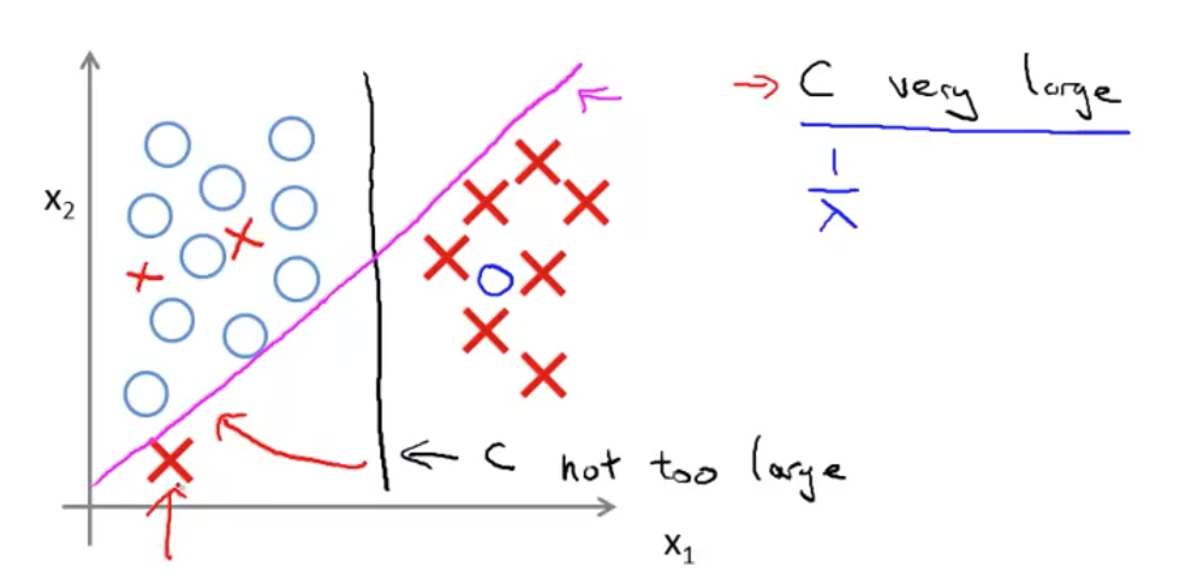 → C very large
1/λ
x₂
← C not too large
x₁